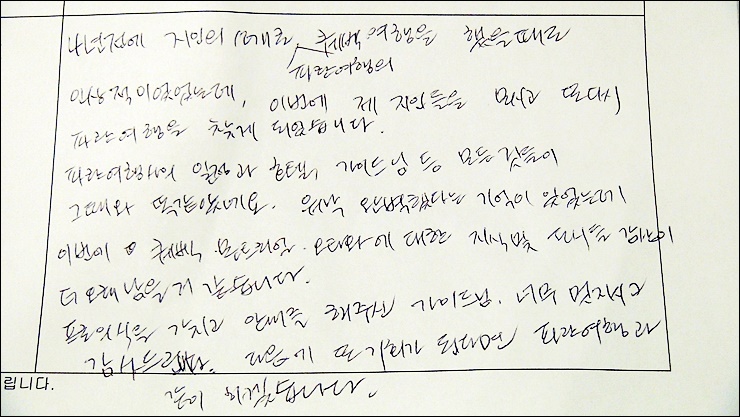 4년전에 지인의 소개로 퀘백여행을 했을때도
파란여행의
인상적이었었는데, 이번에 제 지인들을 모시고 또다시
파란여행을 찾게 되었습니다.
파란여행사의 일정과 호텔, 가이드님 등 모든것들이
그때와 똑같았네요. 워낙 완벽했다는 기억이 있었는데
이번에 퀘백 몬트리얼. 오타와에 대한 지식및
더 오래 남을거 같습니다.
프로의식을 가지고 안내를 해주신 가이드님. 너무 멋지시고
감사드려요. 다음에 또 기회가 된다면 파란여행과
같이 하겠습니다.
립니다.